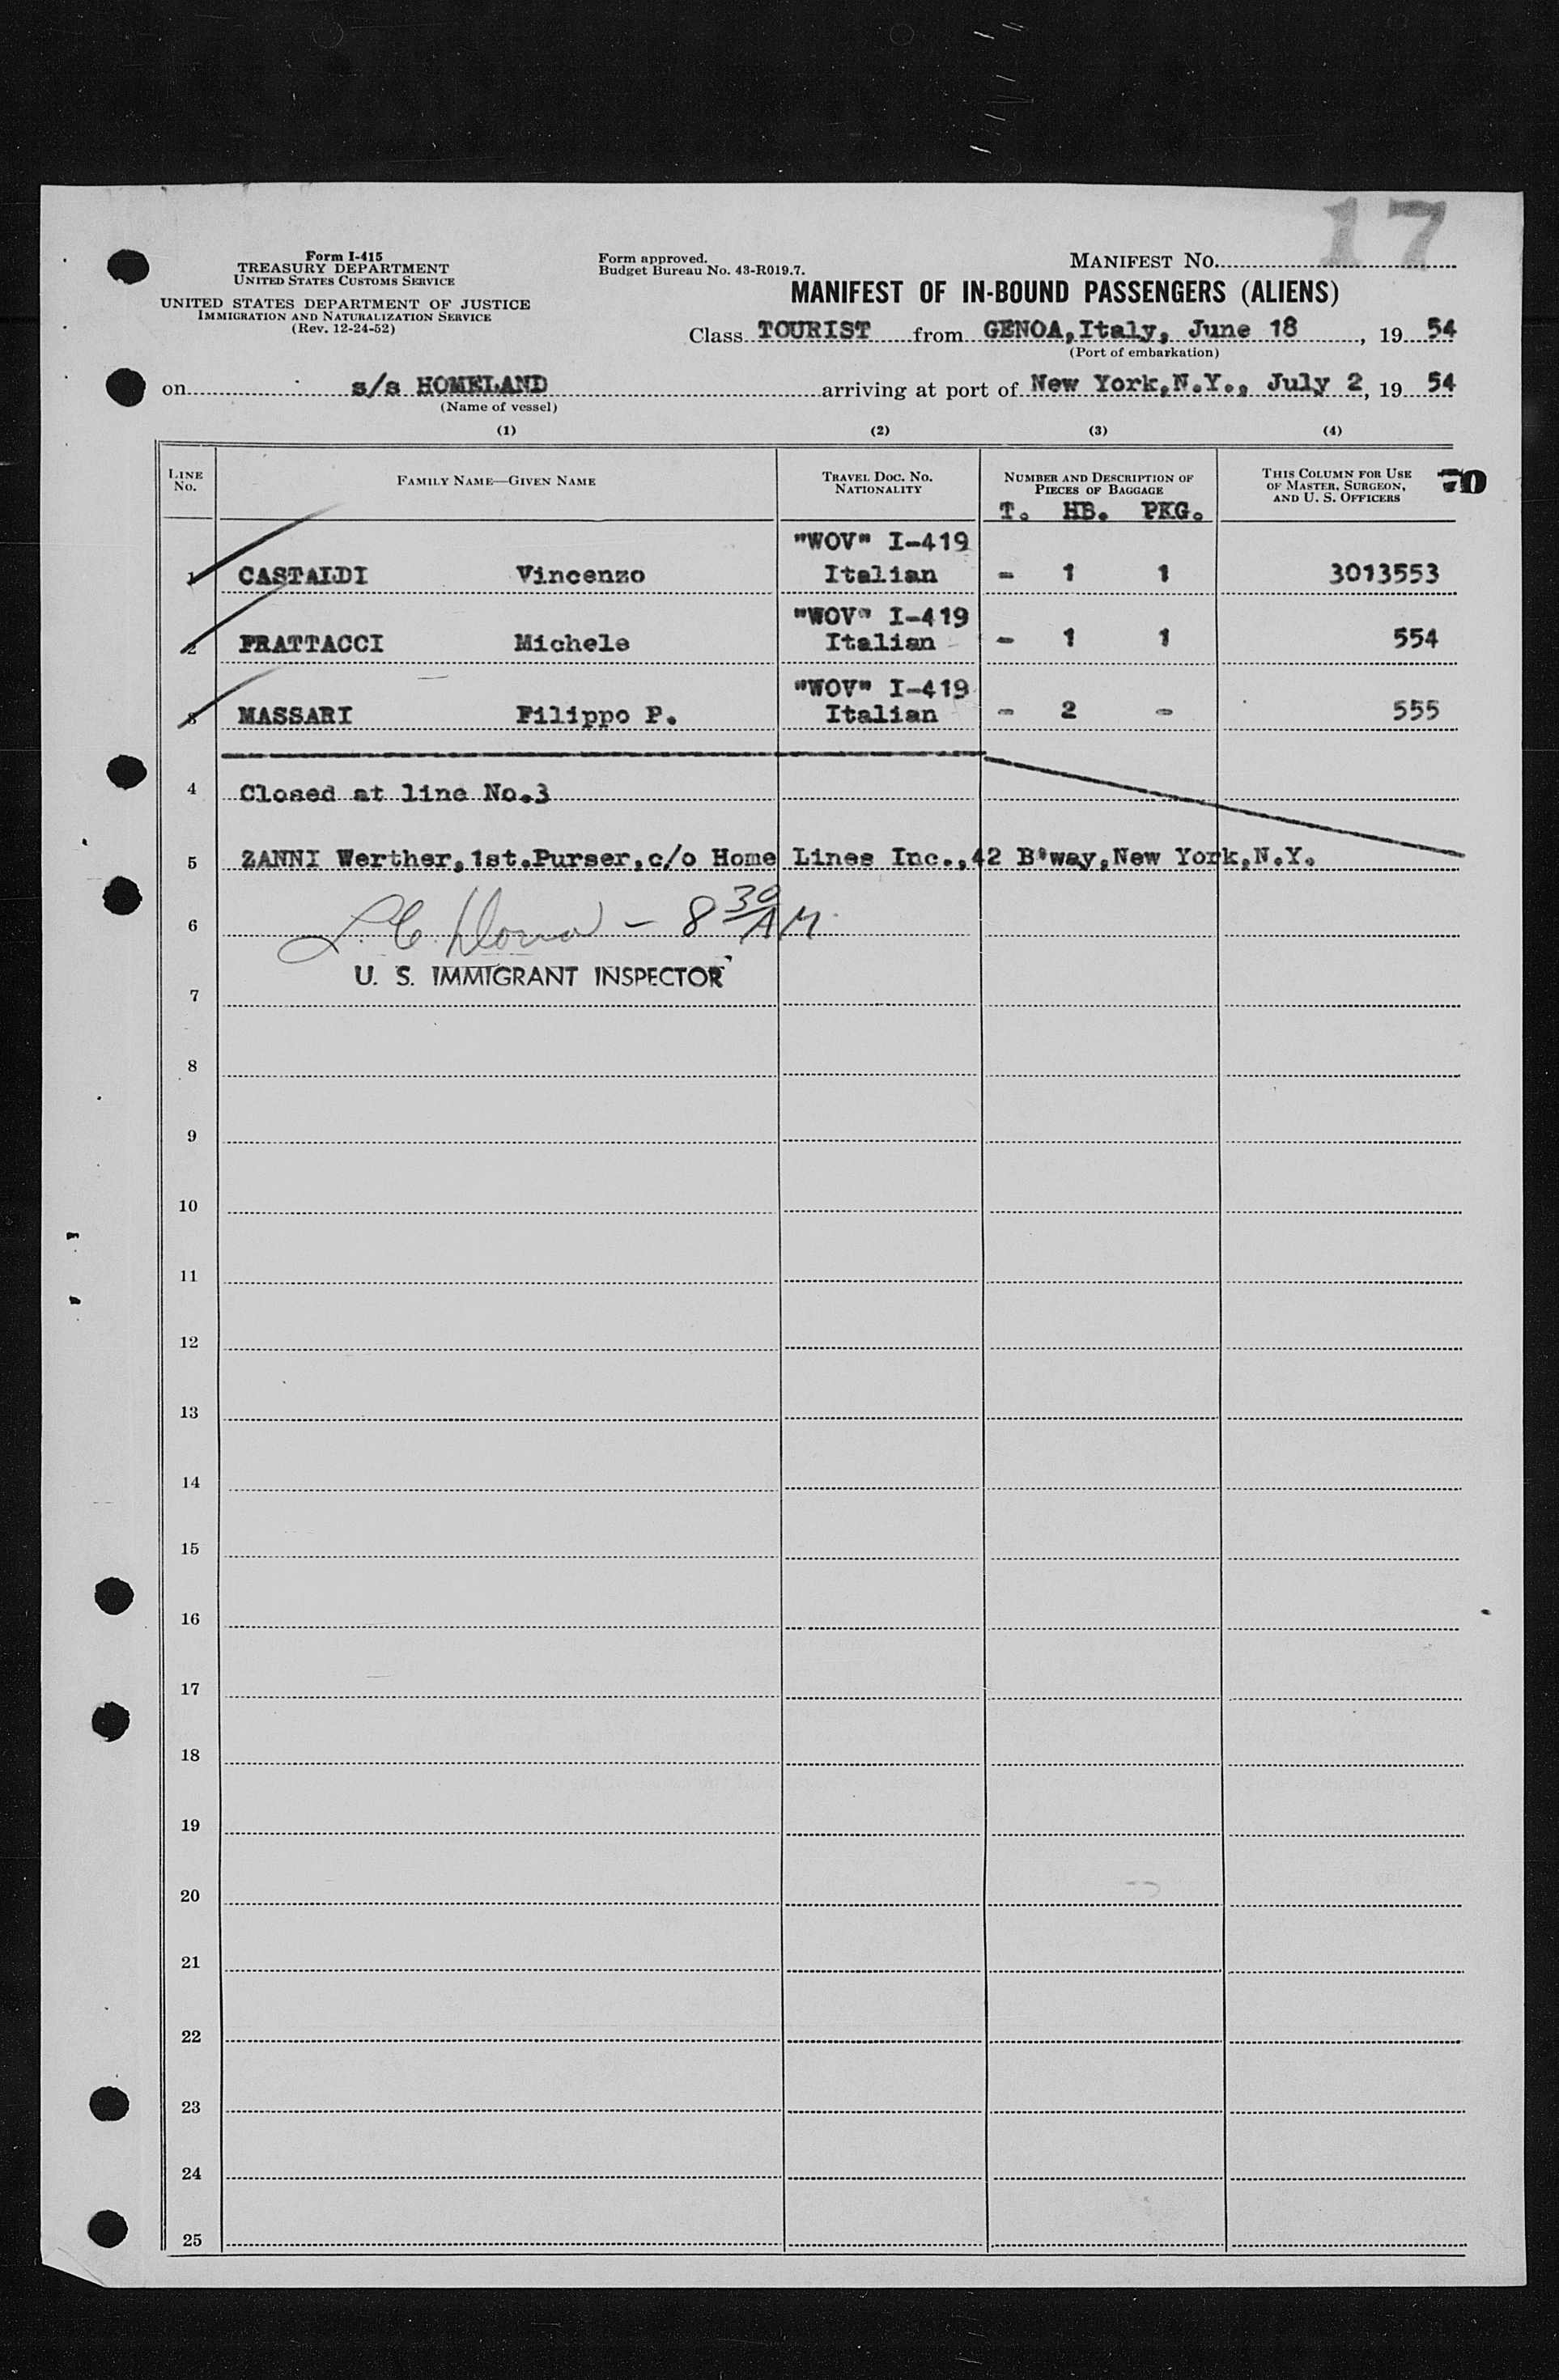 17
Form I-415
TREASURY DEPARTMENT
UNITED STATES CUSTOMS SERVICE
UNITED STATES DEPARTMENT OF JUSTICE
IMMIGRATION AND NATURALIZATION SERVICE
(Rev. 12-24-52)
Form approved.
Budget Bureau No. 43-R019.7.
MANIFEST NO.
MANIFEST OF IN-BOUND PASSENGERS (ALIENS)
Class TOURIST from GENOA, Italy, June 18, 19 54
(Port of embarkation)
on s/s HOMELAND arriving at port of New York, N.Y., July 2, 19 54
(Name of vessel)
(1) (2) (3) (4)
LINE NO. FAMILY NAME—GIVEN NAME TRAVEL DOC. NO. NATIONALITY NUMBER AND DESCRIPTION OF PIECES OF BAGGAGE THIS COLUMN FOR USE OF MASTER, SURGEON, AND U. S. OFFICERS 70
T. HB. PKG.
"WOV" I-419
1 CASTALDI Vincenzo Italian - 1 1 3013553
"WOV" I-419
2 FRATTACCI Michele Italian - 1 1 554
"WOV" I-419
3 MASSARI Filippo P. Italian - 2 - 555
4 Closed at line No.3
5 ZANNI Werther, 1st.Purser, c/o Home Lines Inc., 42 B'way, New York, N.Y.
6 - 8 30 AM
U. S. IMMIGRANT INSPECTOR
7
8
9
10
11
12
13
14
15
16
17
18
19
20
21
22
23
24
25